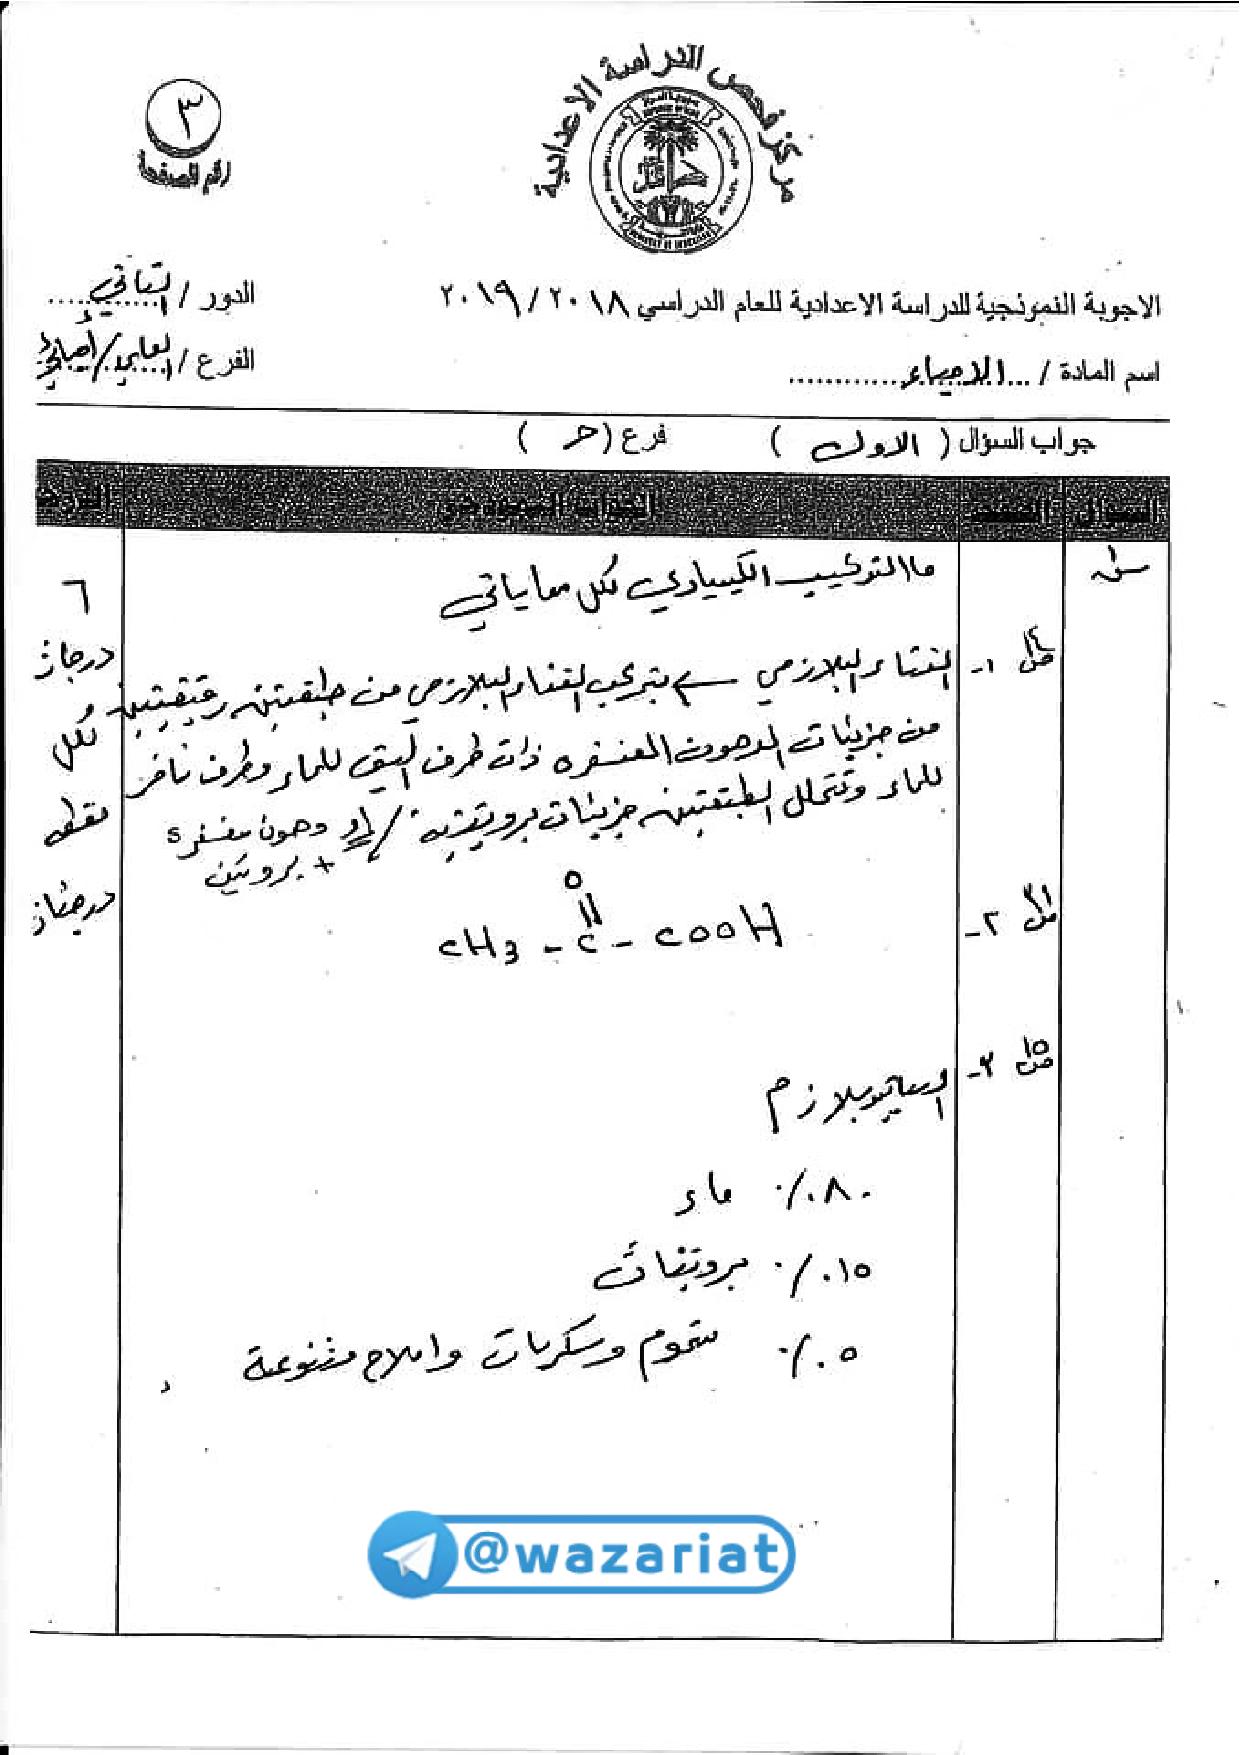 مركز فحص الدراسة الاعدادية
٣
رقم الصفحة
الاجوبة النموذجية للدراسة الاعدادية للعام الدراسي ٢٠١٨ / ٢٠١٩
الدور / الثاني
اسم المادة / الاحياء
الفرع / العلمي / احيائي
جواب السؤال ( الاول ) فرع ( حـ )
السؤال الصفحة الجواب النموذجي الدرجة
س١ ما التركيب الكيميائي لكل مما ياتي ٦
درجات
ص١٤ ١- الغشاء البلازمي يتركب الغشاء البلازمي من طبقتين رقيقتين
لكل
من جزيئات الدهون المفسفره ذات طرف اليف للماء وطرف نافر
للماء وتتخلل الطبقتين جزيئات بروتينية / او دهون مفسفره
نقطه
+ بروتين
درجتان
ص٣١ ٢- CH3 - C - COOH
O
ص١٥ ٣- السايتوبلازم
٨٠٪ ماء
١٥٪ بروتينات
٥٪ شحوم وسكريات واملاح متنوعة
@wazariat